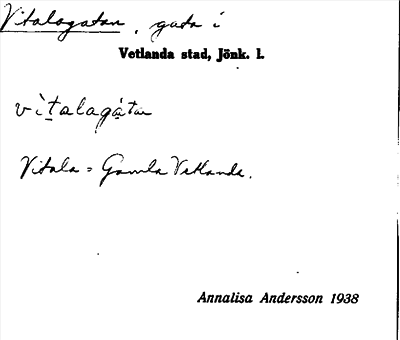 Vitalagatan, gata i
Vetlanda stad, Jönk. l.
vìtalagátan
Vitala = Gamla Vetlanda.
Annalisa Andersson 1938